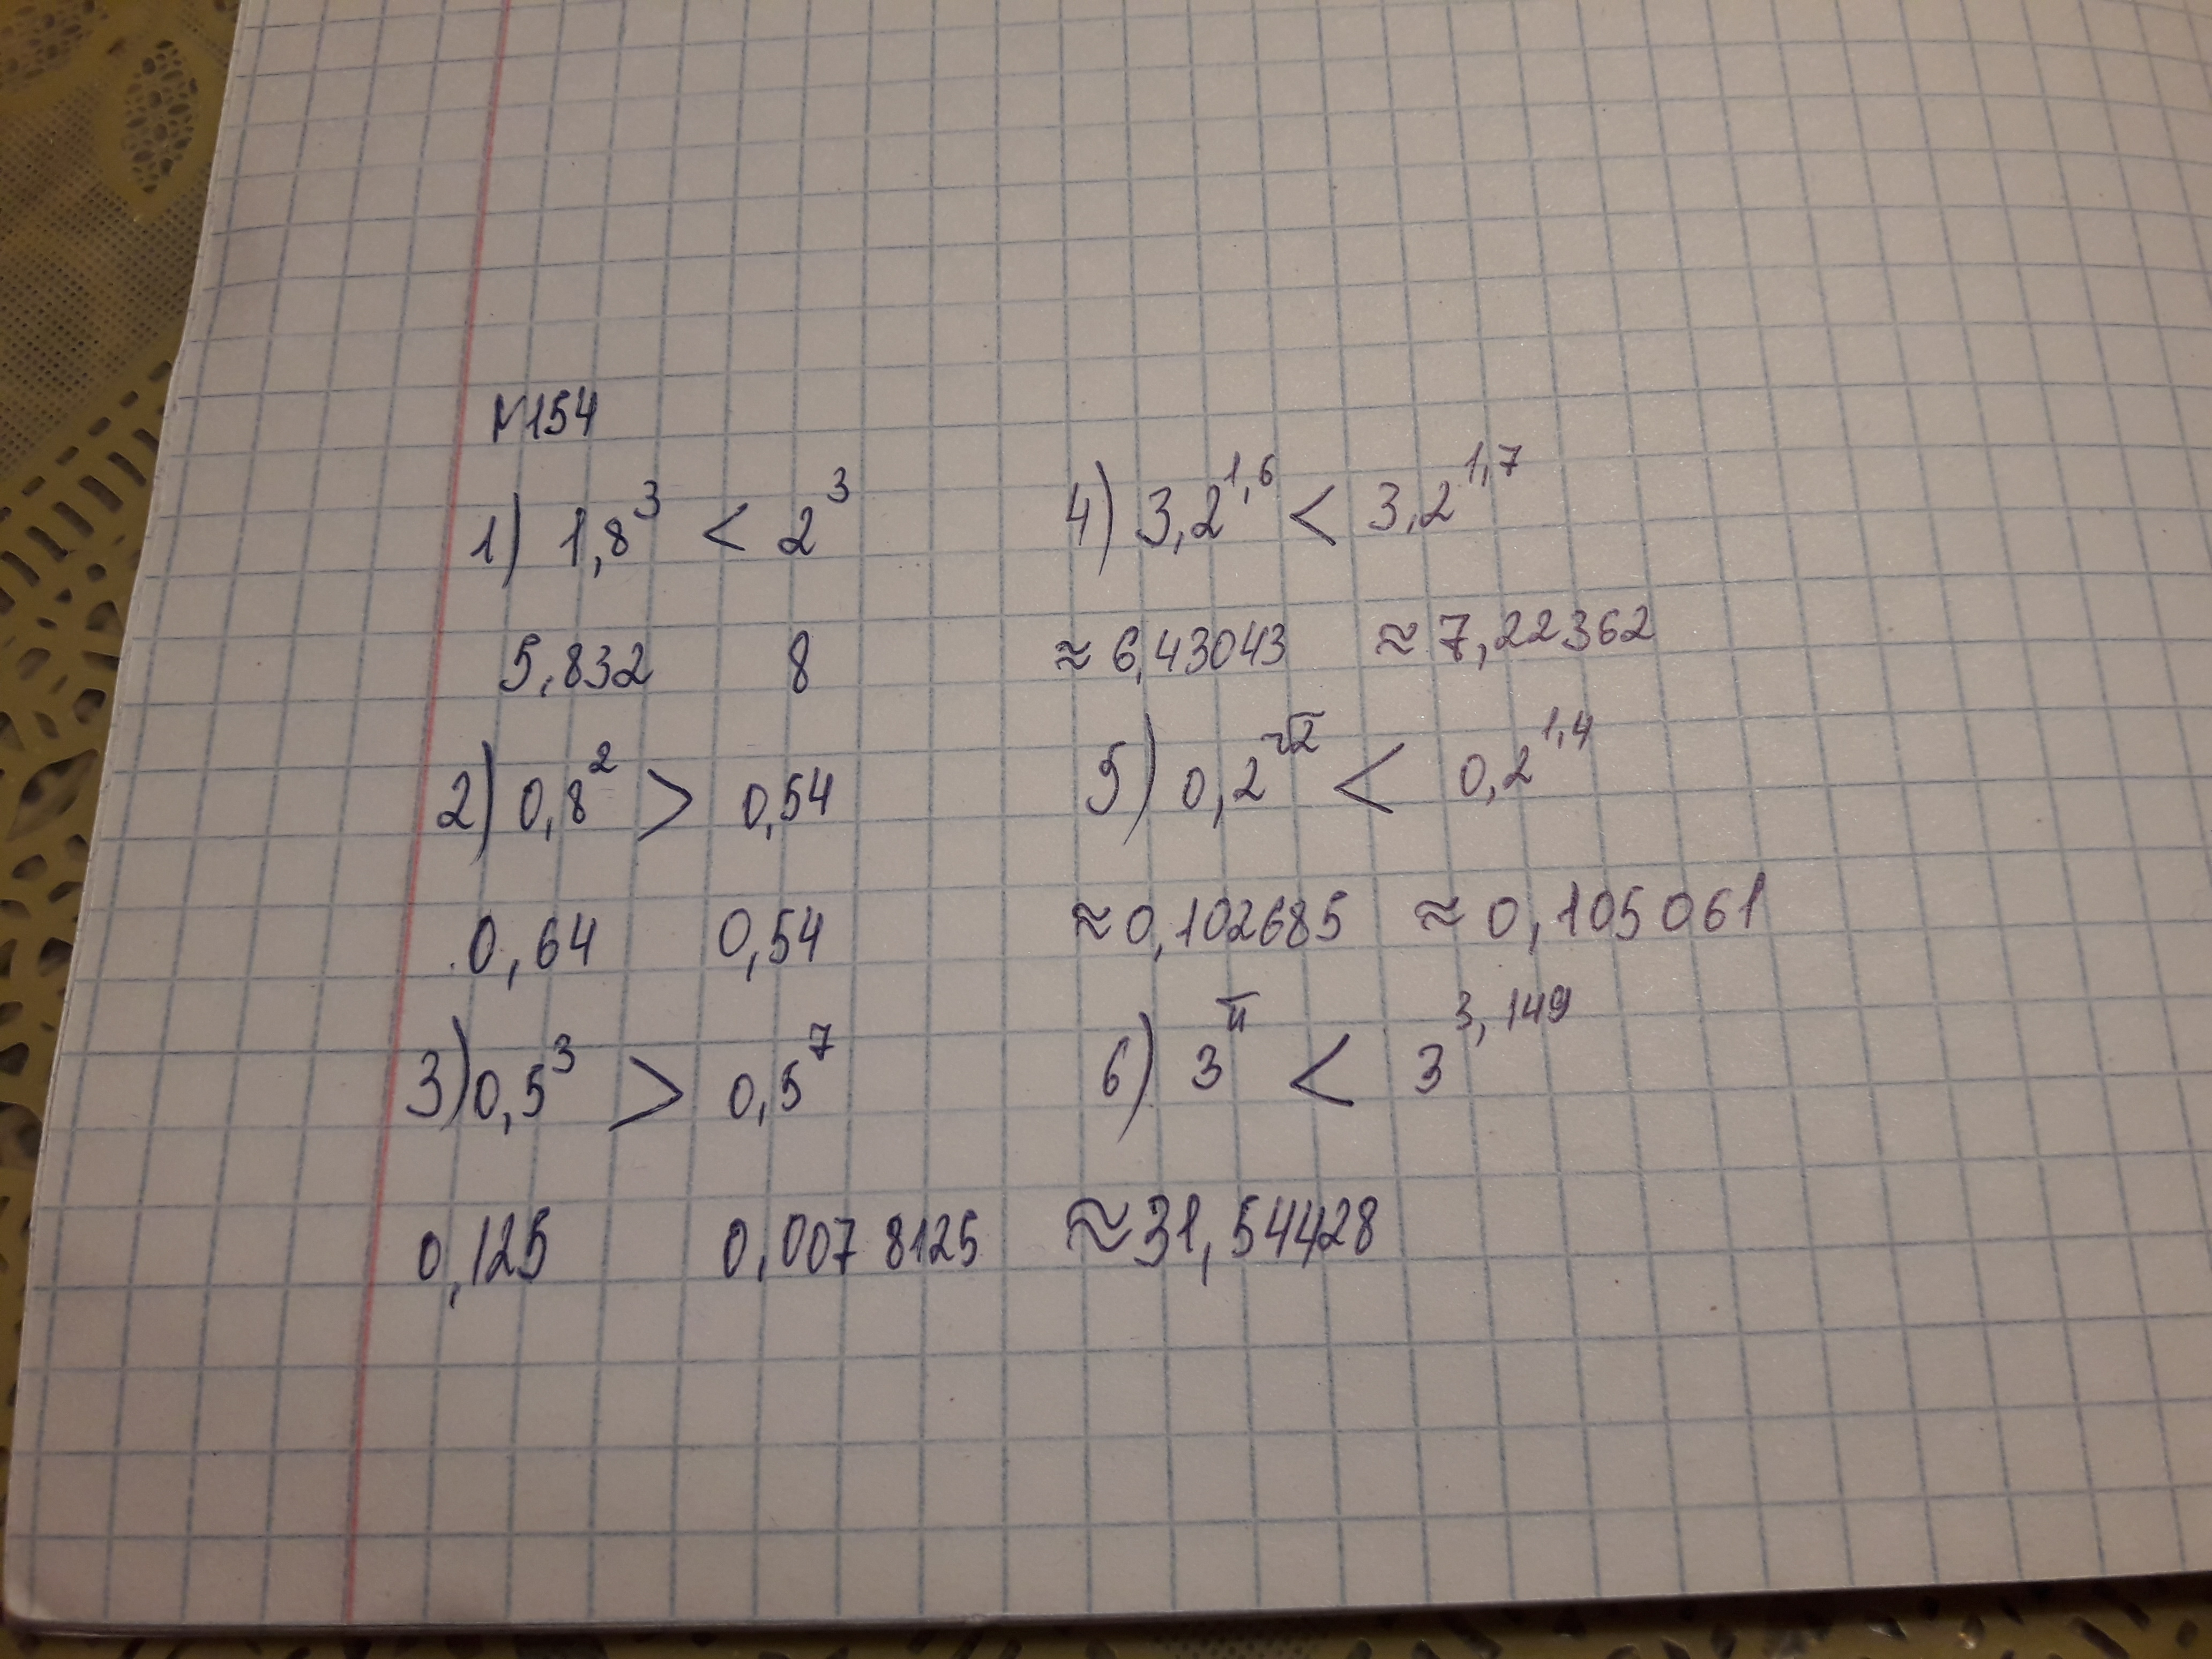 №154
1) 1,8³ < 2³
5,832 8
2) 0,8² > 0,54
0,64 0,54
3) 0,5³ > 0,5⁷
0,125 0,0078125
4) 3,2^1,6 < 3,2^1,7
≈ 6,43043 ≈ 7,22362
5) 0,2^√2 < 0,2^1,4
≈ 0,102685 ≈ 0,105061
6) 3^π < 3^3,149
≈ 31,54428